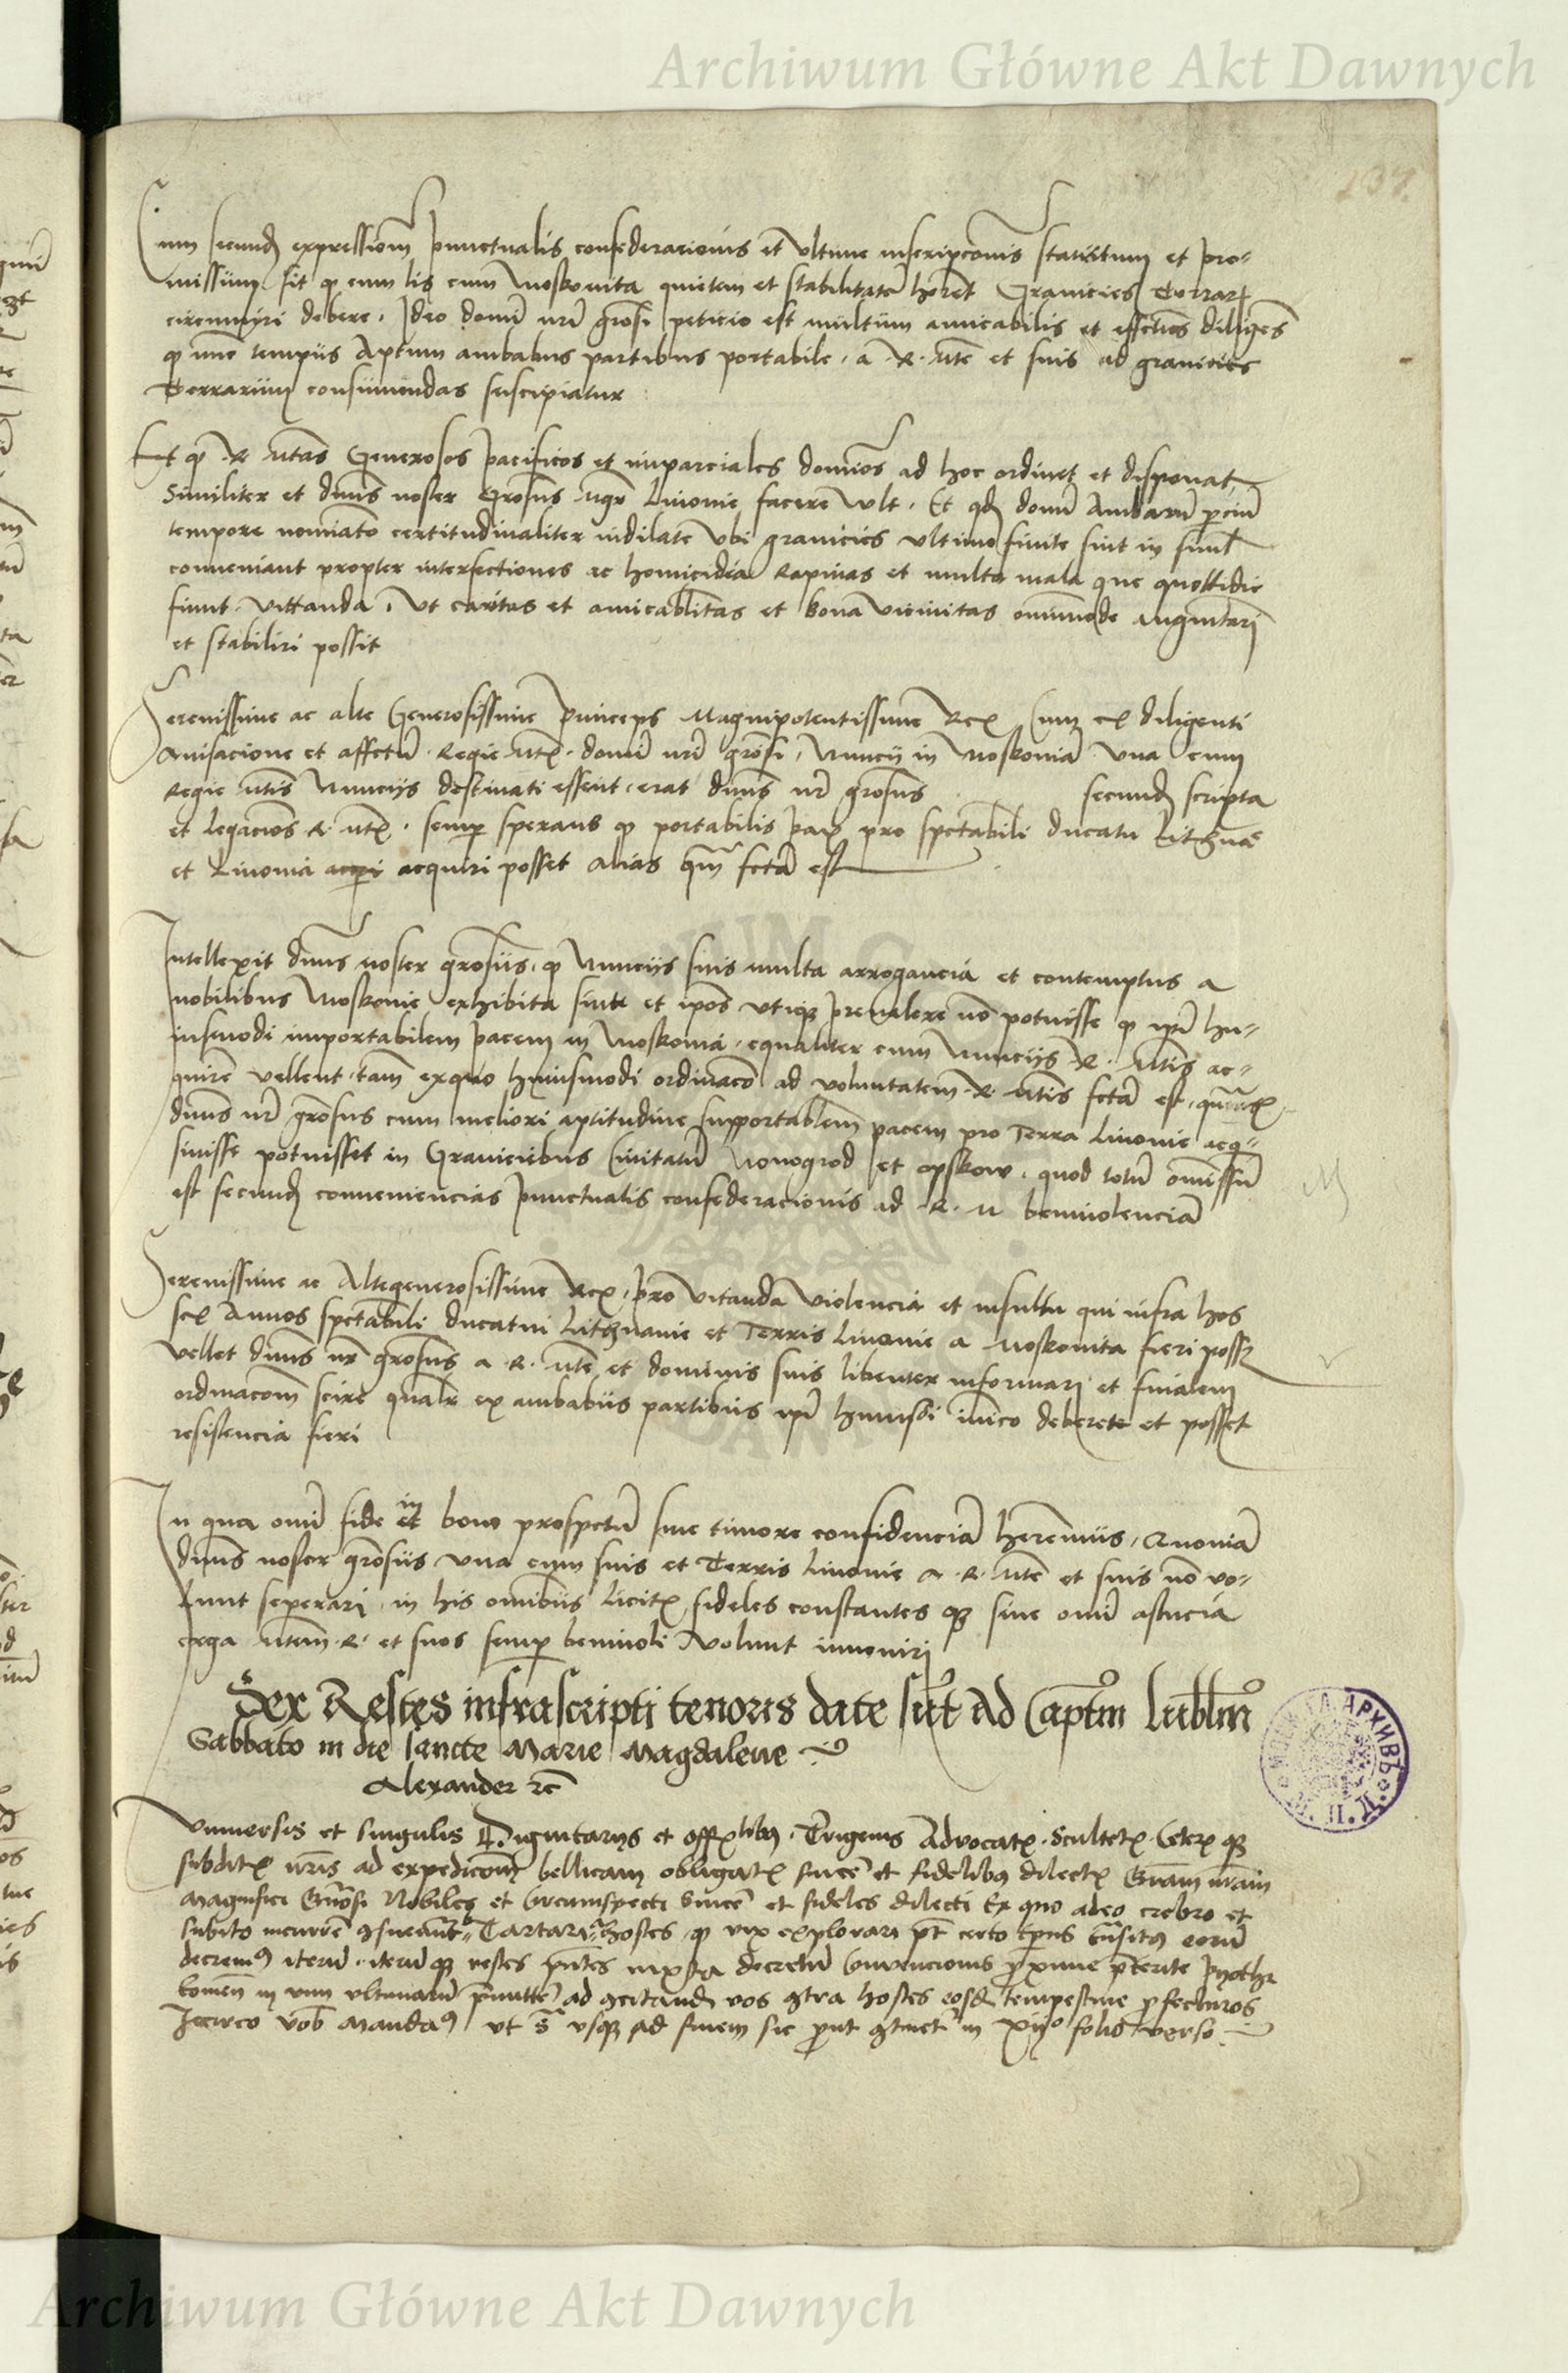 Archiwum Główne Akt Dawnych
137
Cum secund expressiom punctualis confederacionis et ultime inscripcionis statutum et pro-
missum sit q cum lis cum Moskovita quietem et stabilitate heret Granicies Terrar
circumiri debere. Ideo domi nri grosi peticio est multum amicabilis et effectios diliges
q nuc tempus Aptum ambabus partibus portabile. a R. Mte et suis ad granicies
Terrarum consumendas suscipiatur
Et q R Mtas Generosos pacificos et imparciales domios ad hoc ordinet et disponat
Similiter et dnus noster Grosus Mgr Livonie facere vult. Et qd domi Ambaru parciu
tempore nominato certitudinaliter indilate ubi granicies ultimo finite sint in simul
conveniant propter interfectiones ac homicidia Rapinas et multa mala que quottidie
fiunt vittanda, ut caritas et amicabilitas et bona vicinitas omnimode augmtari
et stabiliri possit
Serenissime ac alte Generosissime Princeps Magnipotentissime Rex Cum ex diligenti
Avisacione et affectu Regie Mtis domi nri grosi, Nuncij in Moskovia una cum
Regie Mtis Nuncijs destinati essent, erat dnus nr grosus secund scripta
et legacios R. Mtis, semp sperans q portabilis pax pro spectabili ducatu Lithuae
et Livonia acqri acquiri posset alias qm fcta est
Intellexit dnus noster grosus, q Nuncijs suis multa arrogancia et contemptus a
nobilibus Moskovie exhibita sint et ipos utiq prevalere no potuisse q ipi hu-
iusmodi importabilem pacem in Moskovia equaliter cum Nuncijs R. Mtis ac-
quire vellent. tam exquo huiusmodi ordinaco ad voluntatem R. Mtis fcta est, quavis
dnus nr grosus cum meliori aptitudine supportablem pacem pro Terra Livonie acq-
sivisse potuisset in Graniciebus Civitatu Novogrod et opskow. quod totu omissu
est secund conveniencias punctualis confederacionis ad R. M benivolencia
Serenissime ac Altegenerosissime Rex, pro vitanda violencia et insultu qui infra hos
sex Annos spectabili ducatui Lithuanie et Terris Livonie a Moskovita fieri poss
vellet dnus nr grosus a R. Mte et dominis suis libenter informari et finalem
ordinacom scire qualr ex ambabus partibus ipi huiusdi imico deberete et posset
resistencia fieri
In qua omi fide et in bono prospectu sine timore confidencia heremus, Quonia
dnus noster grosus una cum suis et Terris Livonie a R. Mte et suis no vo-
lunt seperari, in his omibus licitis fideles constantes q sine omi astucia
erga Mtem R. et suos semp benivoli volunt inveniri
Sex Restes infrascripti tenoris date sut Ad Captm lublm
Sabbato in die sancte Marie Magdalene
Alexander rc
Universis et singulis Dignitarijs et offlibus. Trigenis Advocatis. Scultetis. Ceteris q
subditis nris ad expedicom bellicam obligatis since et fidelibus dilectis Gram nram
Magnifici Gnosi Nobiles et Circumspecti Since et fideles dilecti Ex quo adeo crebro et
subito incurre gsuevut Tartari hostes q vix explorari pt certo tpus trasitus eoru
decrevimus iteru iteruq restes pntes iuxta decretu Convencionis proxime pterite Pyothr
komen in unu ultimatu pmitte ad gcitand vos gtra hostes eosd tempestive profecturos
Iccirco vob Mandamus ut S usq ad finem sic put gtinet in xij folio verso
Archiwum Główne Akt Dawnych